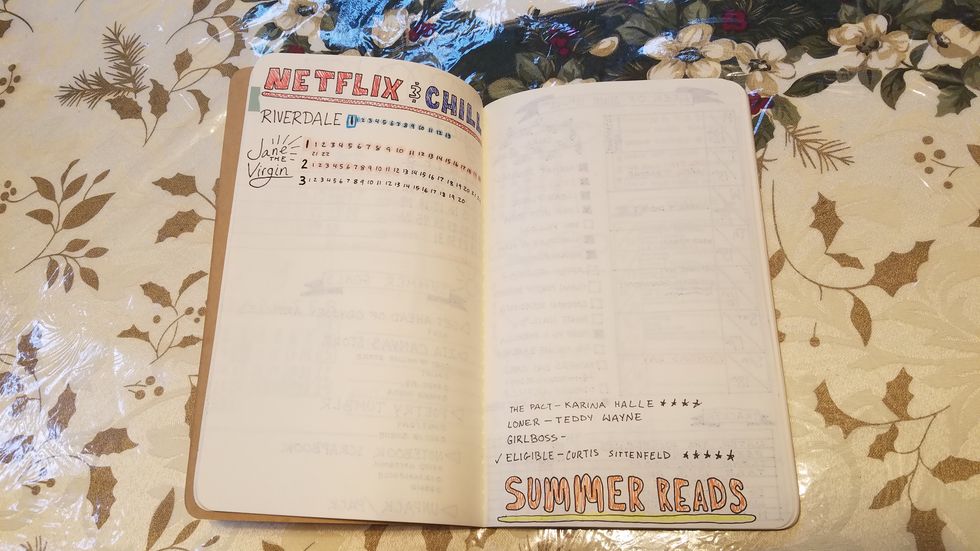 NETFLIX & CHILL
RIVERDALE 1 1 2 3 4 5 6 7 8 9 10 11 12 13
Jane THE Virgin
1 1 2 3 4 5 6 7 8 9 10 11 12 13 14 15 16 17 18 19
21 22
2 1 2 3 4 5 6 7 8 9 10 11 12 13 14 15 16 17 18 19 20 21
3 1 2 3 4 5 6 7 8 9 10 11 12 13 14 15 16 17 18 19 20
THE PACT - KARINA HALLE ★★★★
LONER - TEDDY WAYNE
GIRLBOSS -
✓ ELIGIBLE - CURTIS SITTENFELD ★★★★★
SUMMER READS